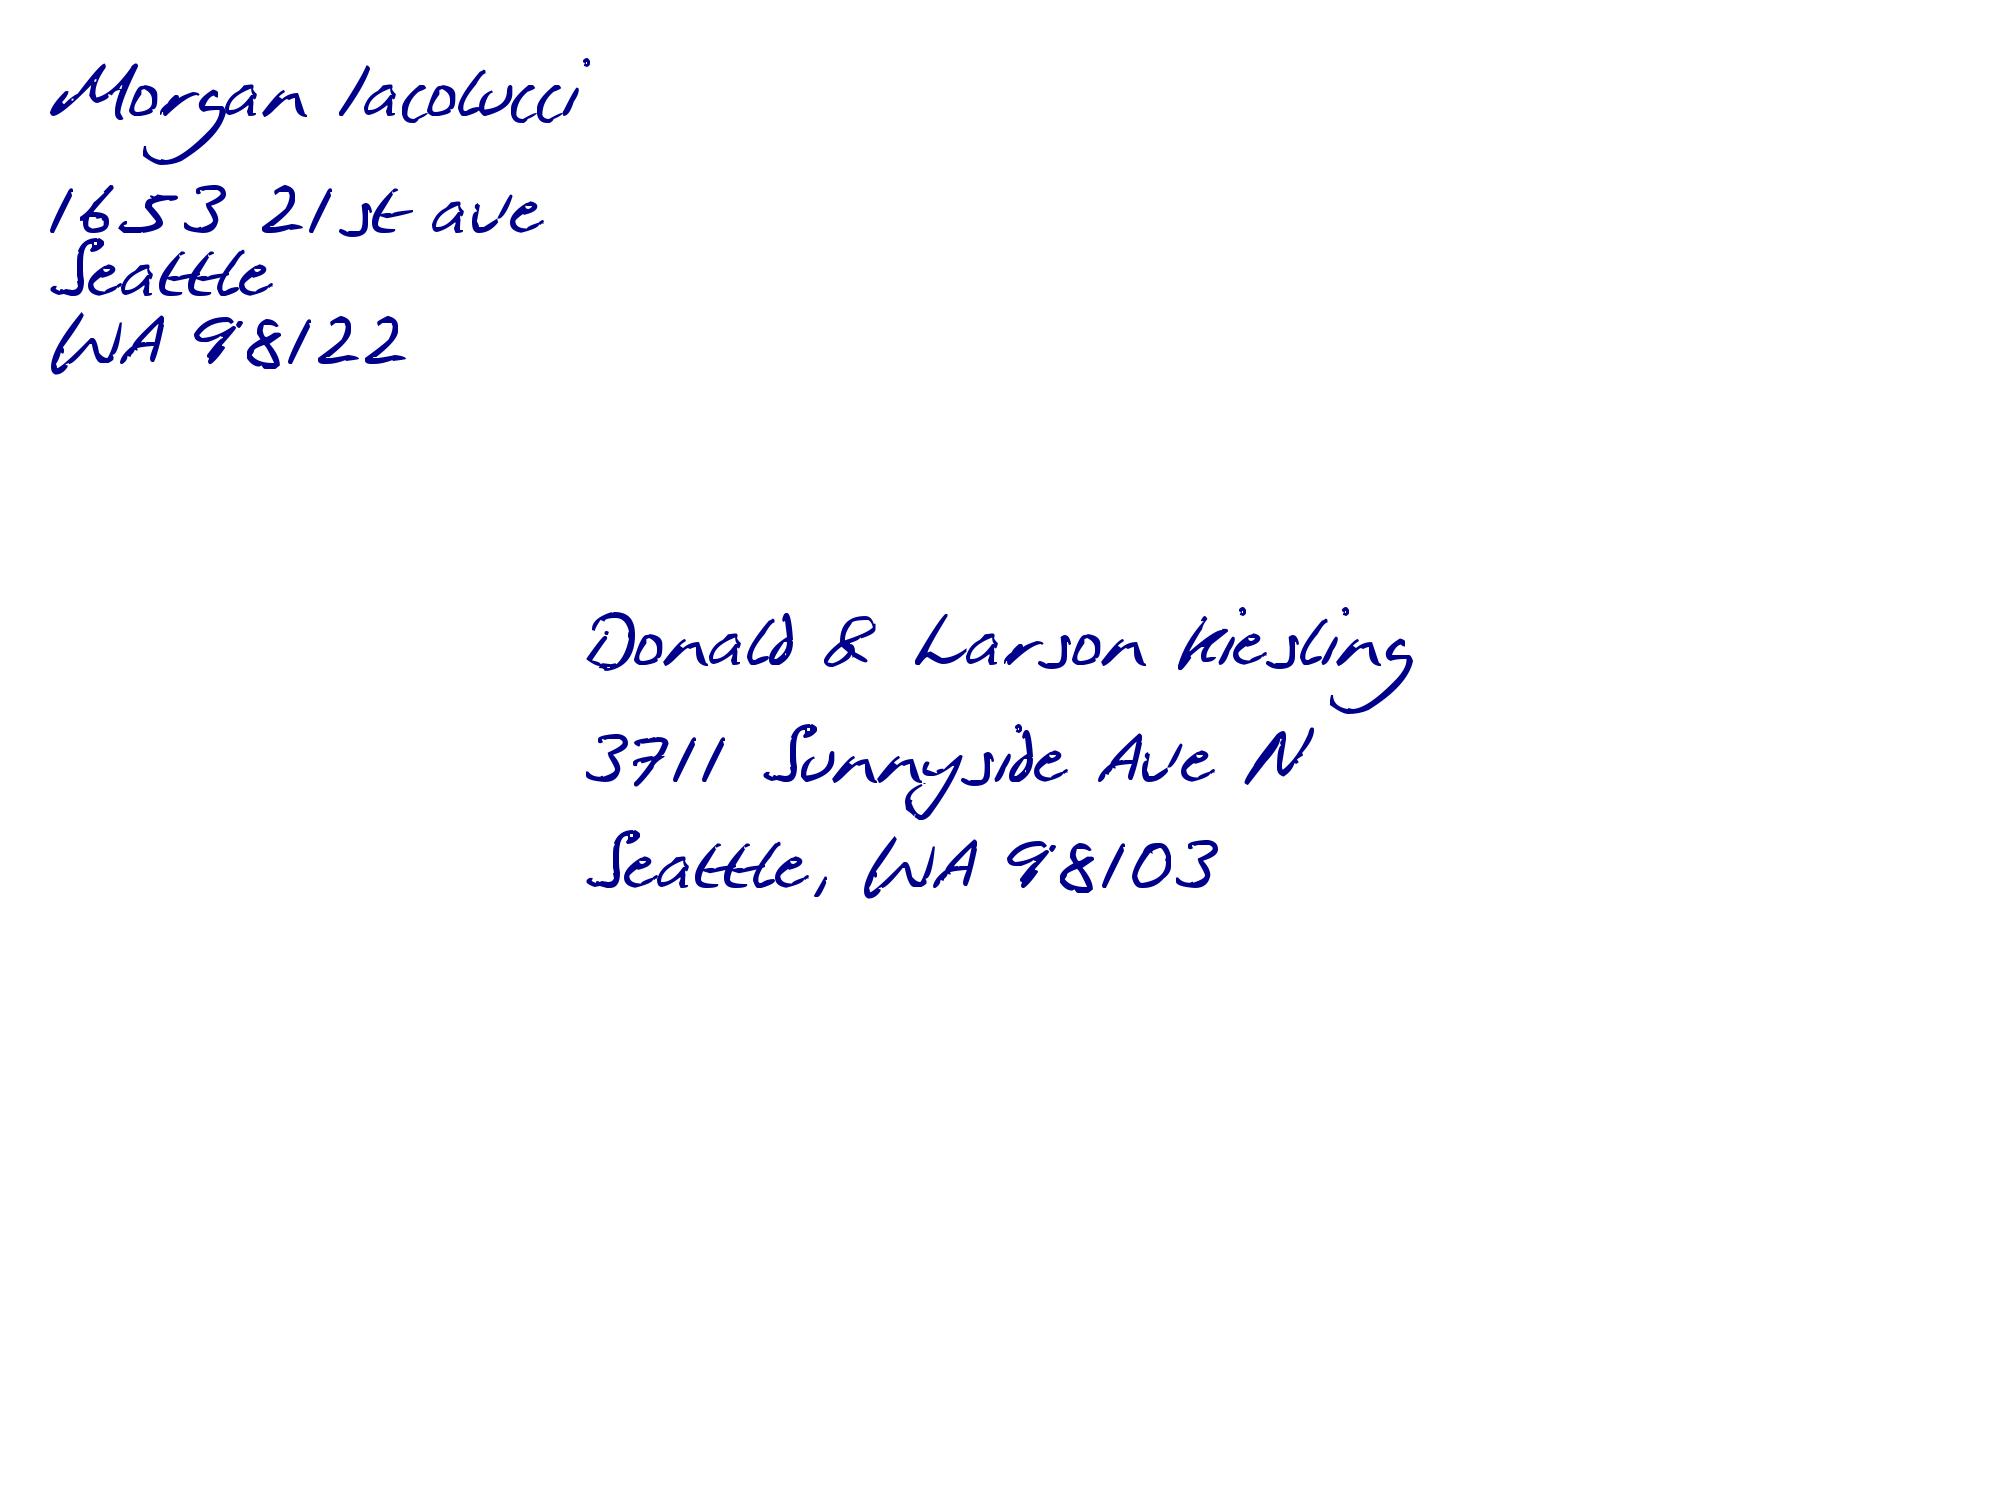 Morgan Iacolucci
1653 21st ave
Seattle
WA 98122
Donald & Larson Kiesling
3711 Sunnyside Ave N
Seattle, WA 98103